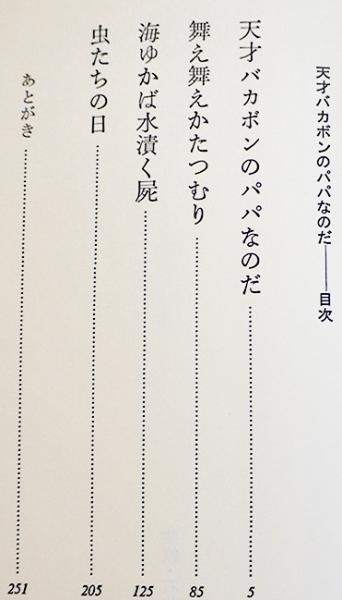 天才バカボンのパパなのだ――目次
天才バカボンのパパなのだ……………………5
舞え舞えかたつむり……………………85
海ゆかば水漬く屍……………………125
虫たちの日……………………205
あとがき……………………251